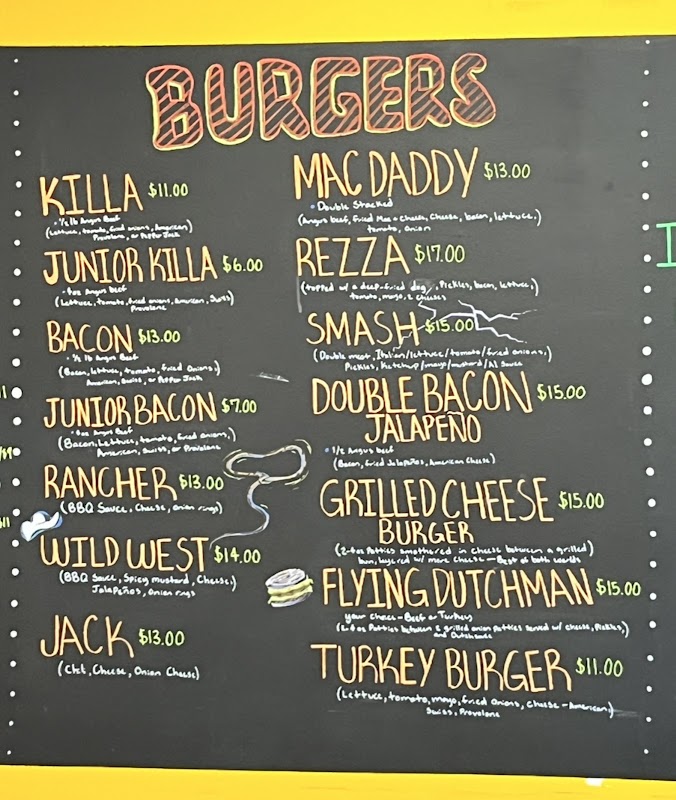 BURGERS
KILLA $11.00
Angus Beef
(Lettuce, tomato, fried onions, American,)
Provolone, or Pepper Jack
JUNIOR KILLA $6.00
Angus beef
(Lettuce, tomato, fried onions, American, Swiss)
Provolone
BACON $13.00
lb Angus Beef
(Bacon, lettuce, tomato, fried Onions,)
American, Swiss, or Pepper Jack
JUNIOR BACON $7.00
Angus Beef
(Bacon, Lettuce, tomato, fried onions,)
American, Swiss, or Provolone
RANCHER $13.00
(BBQ Sauce, Cheese, onion rings)
WILD WEST $14.00
(BBQ Sauce, Spicy mustard, Cheese,)
Jalapeños, Onion rings
JACK $13.00
Cheese, Onion Cheese)
MAC DADDY $13.00
• Double Stacked
(Angus beef, Fried Mac n Cheese, Cheese, bacon, lettuce,)
tomato, onion
REZZA $17.00
(topped w/ a deep-fried dog, Pickles, bacon, lettuce,)
tomato, mayo, 2 cheeses
SMASH $15.00
(Double meat, Italian/lettuce/tomato/fried onions,)
Pickles, Ketchup/mayo/mustard/A1 Sauce
DOUBLE BACON $15.00
JALAPEÑO
• 1/2 Angus beef
(Bacon, Fried Jalapeños, American Cheese)
GRILLED CHEESE $15.00
BURGER
(2-4oz Patties smothered in cheese between a grilled)
bun, layered w/ more cheese - Best of both worlds
FLYING DUTCHMAN $15.00
your choice - Beef or Turkey
(2-6oz Patties between 2 grilled onion Patties served w/ cheese, Pickles,)
and Dutch sauce
TURKEY BURGER $11.00
(Lettuce, tomato, mayo, fried onions, cheese - American,)
Swiss, Provolone